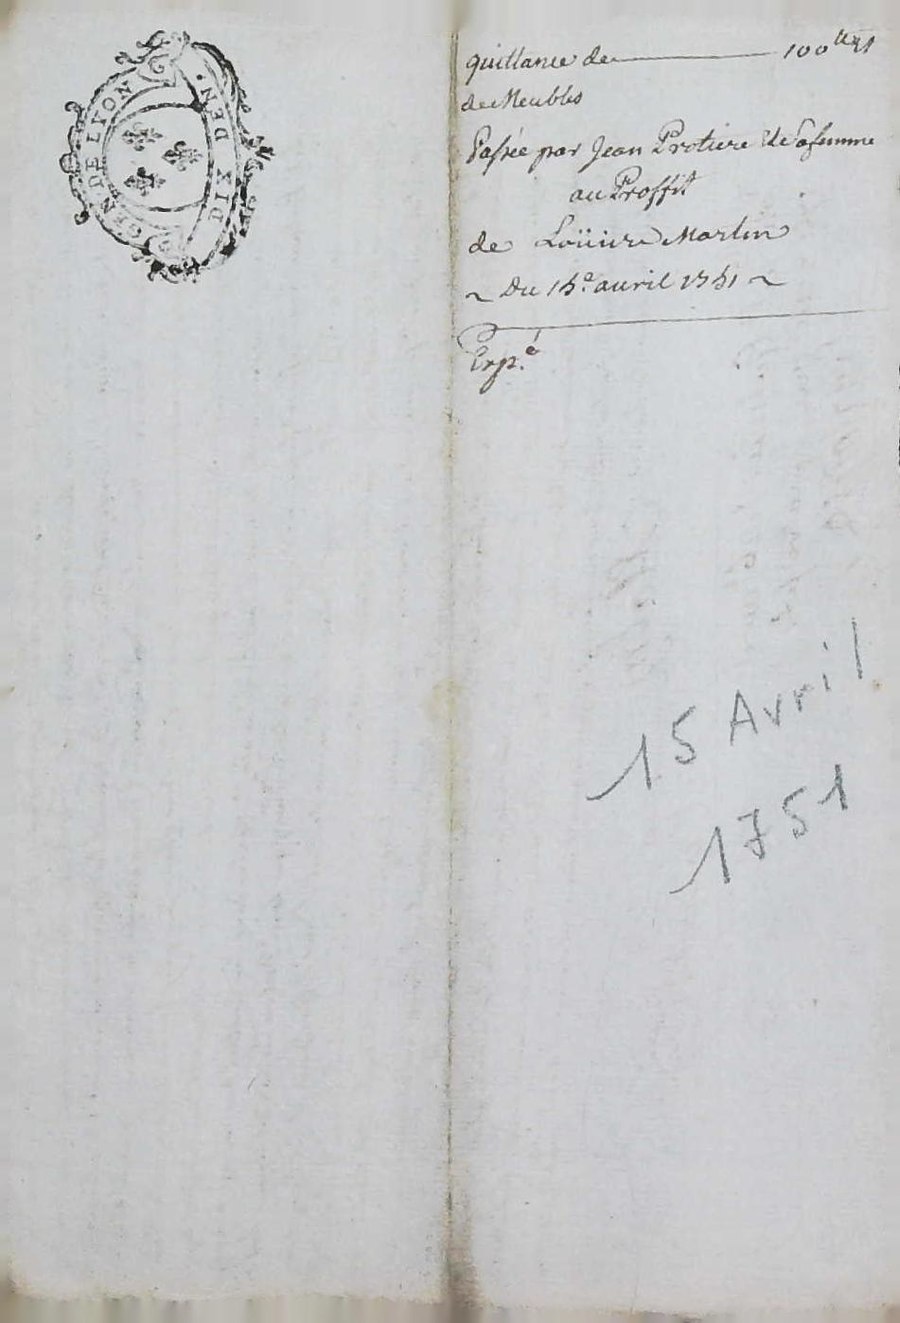 GEN DE LYON
DIX DEN.
quittance de 100 ttz
de Meubles
Passée par Jean Protiere & Sa femme
au Proffit
de Loüise Martin
~ Du 15e avril 1751 ~
Exp.é
15 Avril
1751